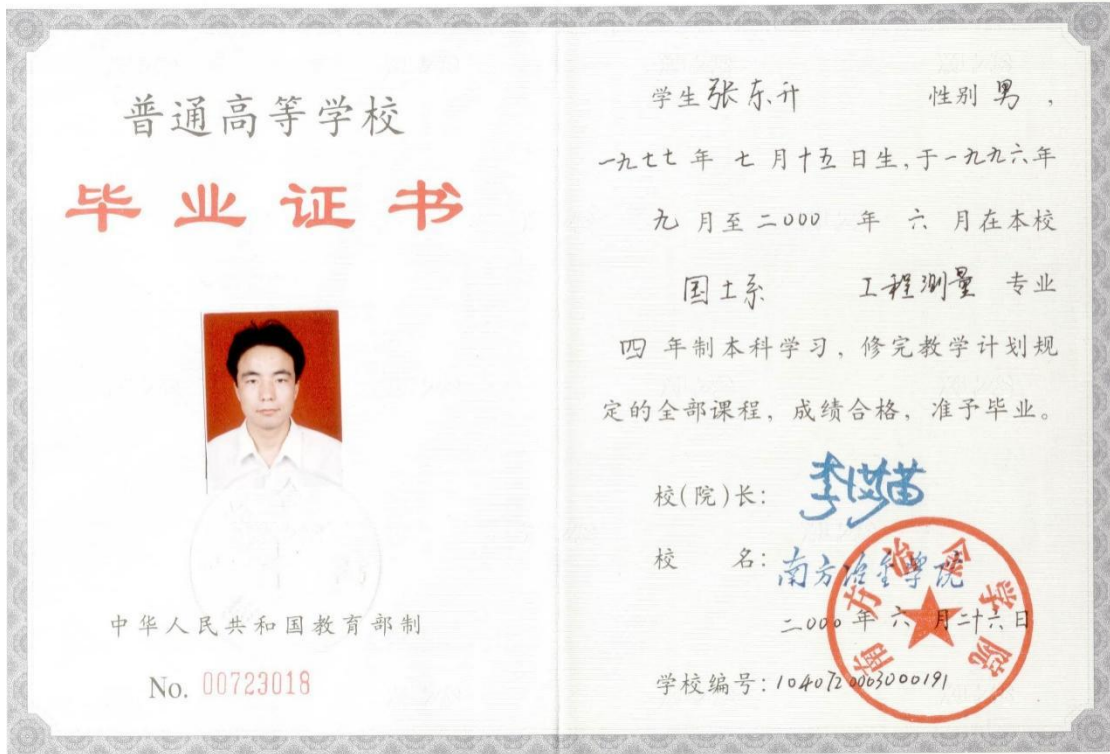 普通高等学校
毕业证书
中华人民共和国教育部制
No. 00723018
学生张东升 性别 男 ,
一九七七 年 七 月十五 日生,于一九九六年
九 月至二000 年 六 月在本校
国土系 工程测量 专业
四 年制本科学习, 修完教学计划规
定的全部课程, 成绩合格, 准予毕业。
校(院)长:
校 名: 南方冶金学院
二000 年 六 月二十六日
南方冶金学院
学校编号: 1040720003000191